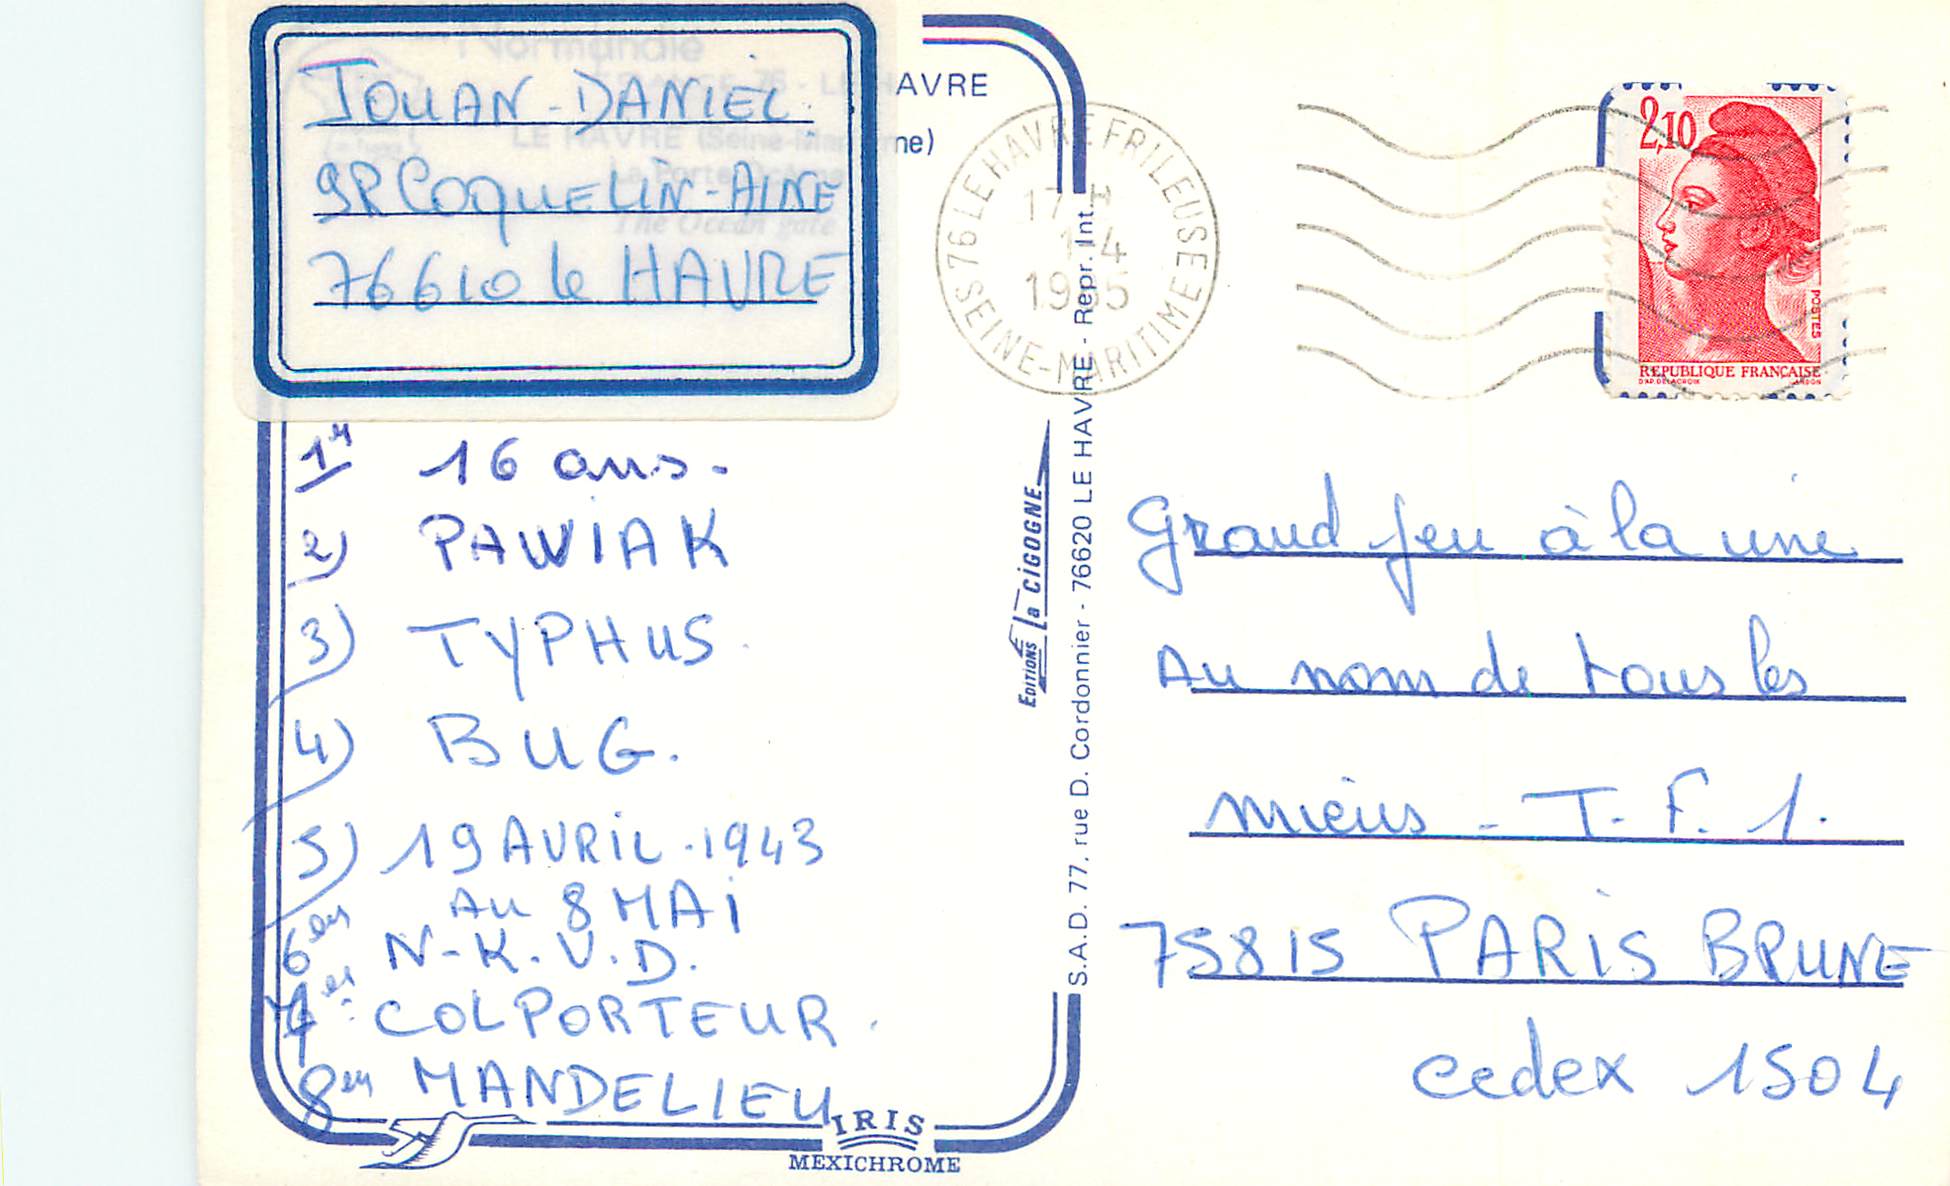 JOUAN-DANIEL.
9R COQUELIN-AINE
76610 le HAVRE
Normandie
76 - LE HAVRE
LE HAVRE (Seine-Maritime)
The Ocean gate
1er 16 ans.
2) PAWIAK
3) TYPHUS.
4) BUG.
5) 19 AVRIL.1943
AU 8 MAI
6em N-K.V.D.
7em COLPORTEUR.
8em MANDELIEU
IRIS
MEXICHROME
EDITIONS La CIGOGNE
S.A.D. 77. rue D. Cordonnier - 76620 LE HAVRE - Repr. Int.
76 LE HAVRE FRILEUSE
17 H
1-4
1985
SEINE-MARITIME
2,10
POSTES
REPUBLIQUE FRANÇAISE
D'AP. DELACROIX GANDON
Grand jeu à la une
Au nom de tous les
miens - T.F.1.
75815 PARIS BRUNE
cedex 1504